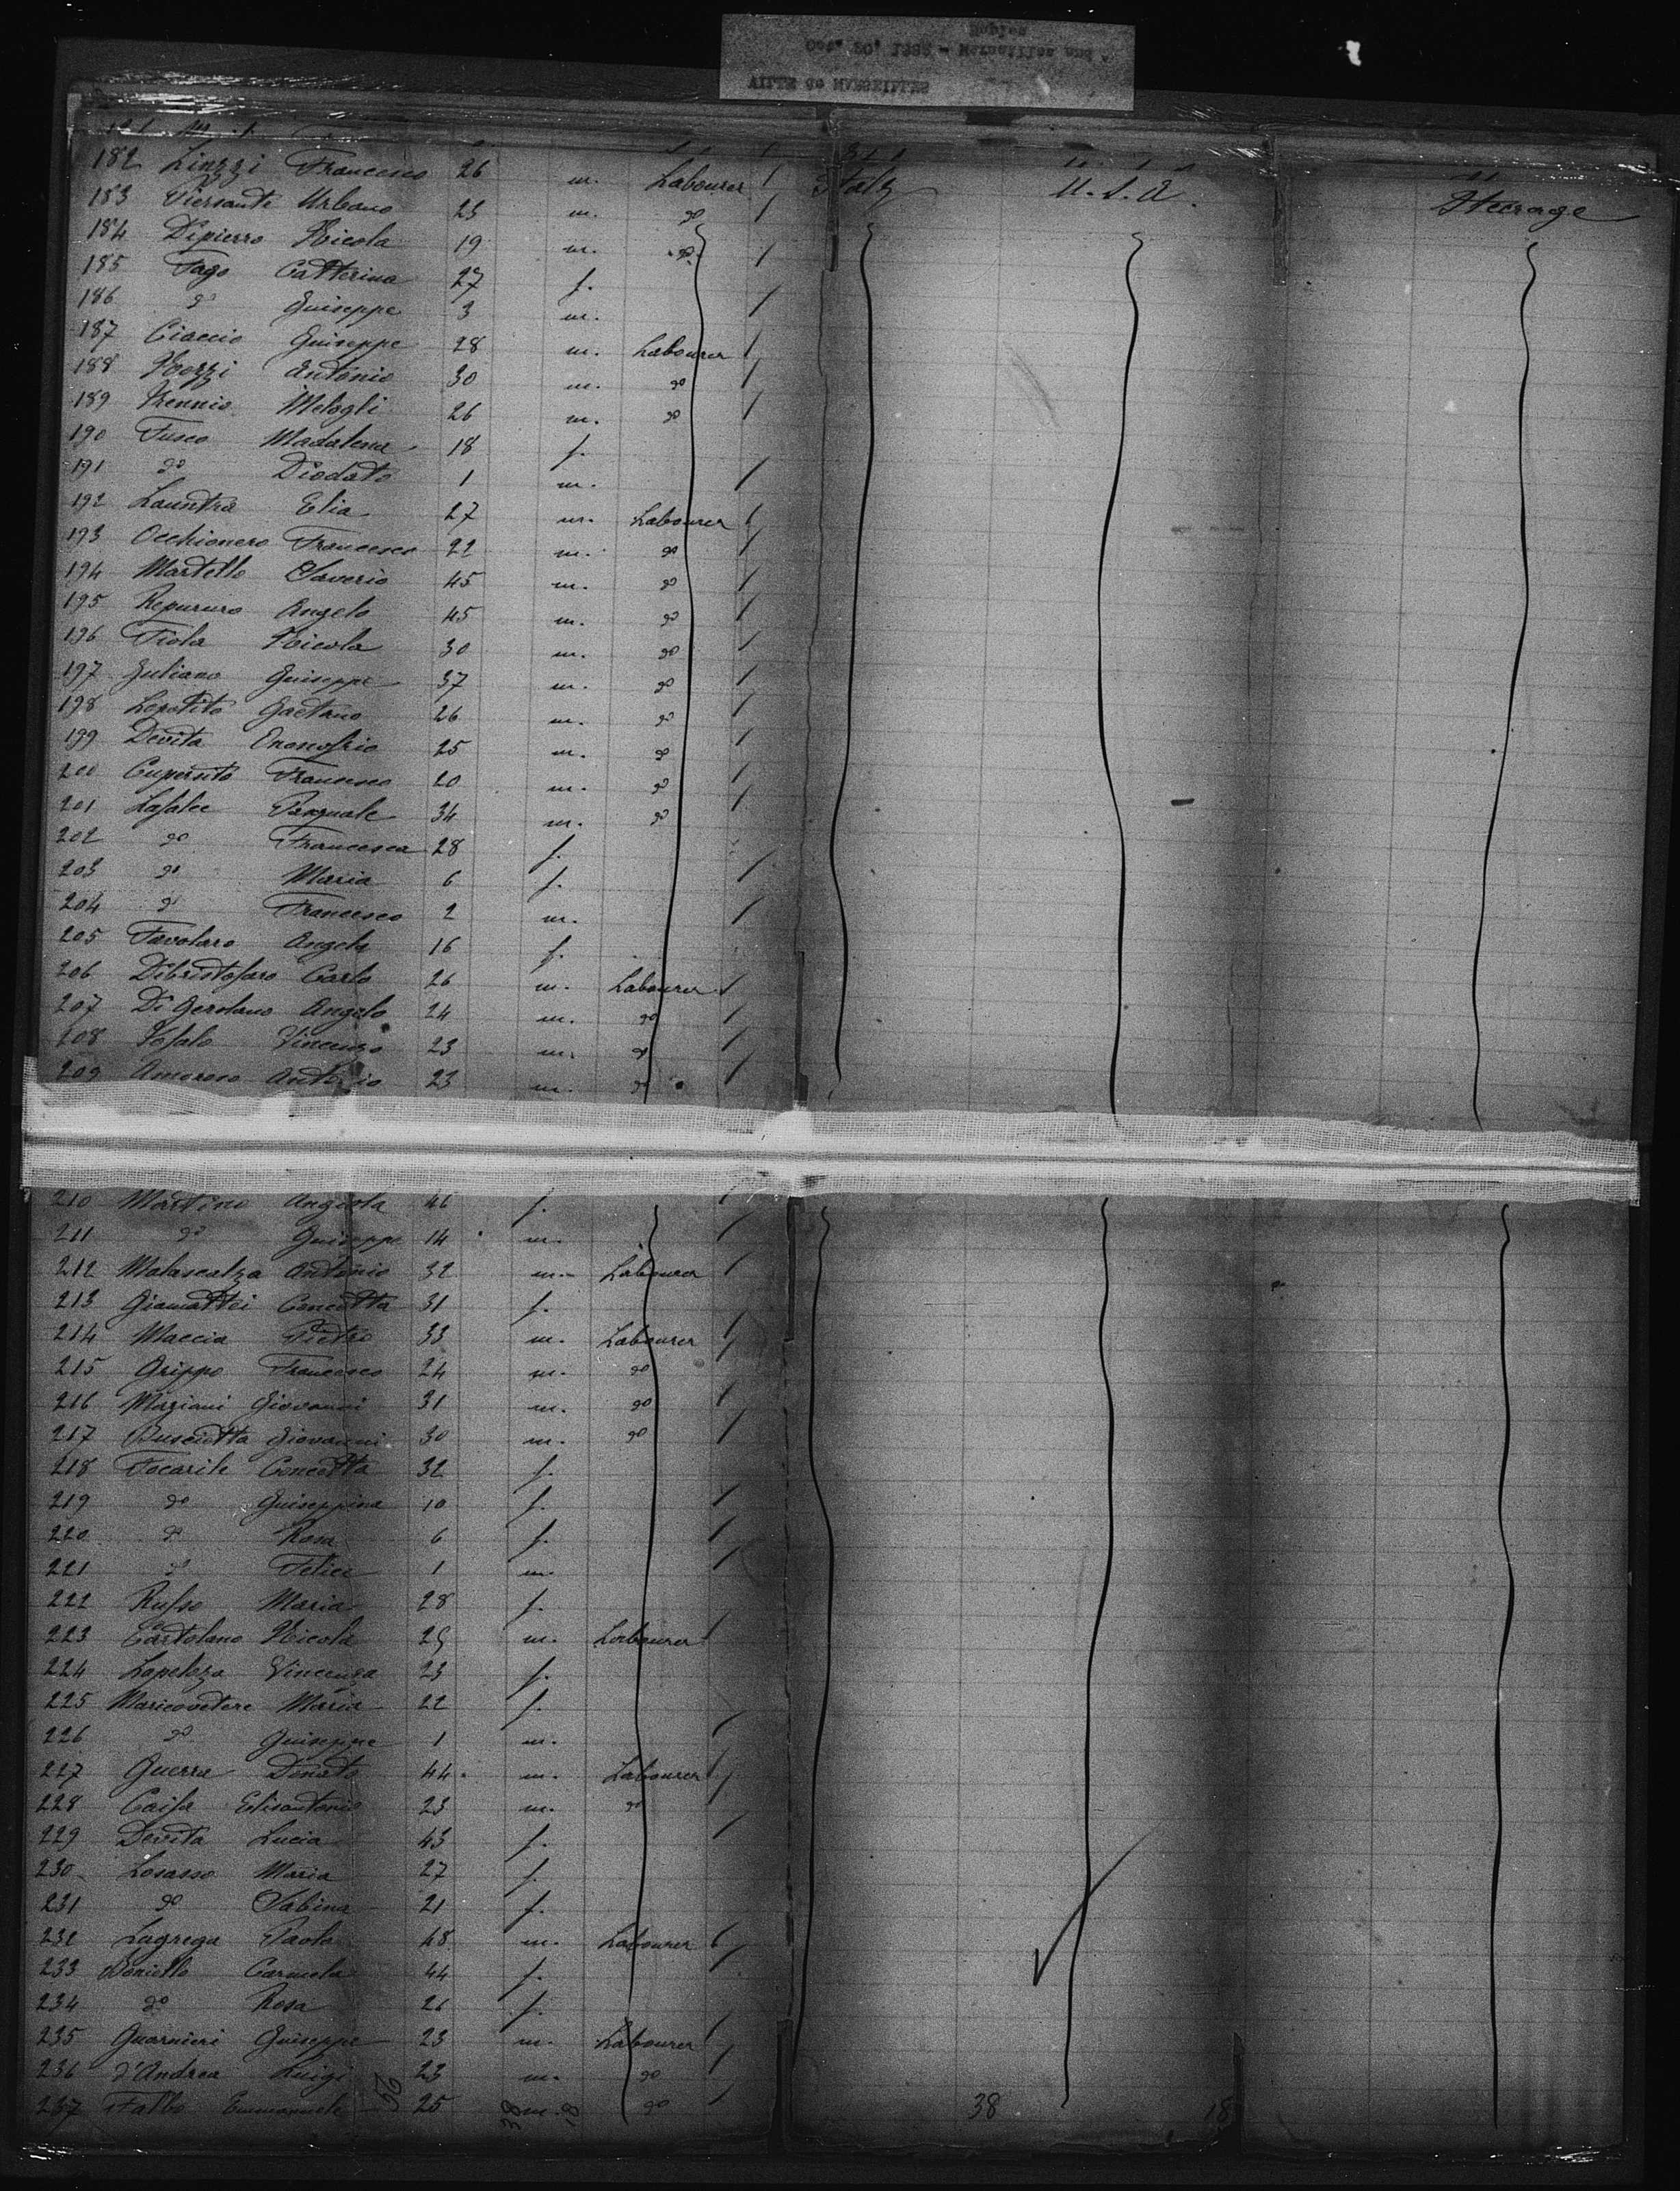 VILLE de MARSEILLES
Oct. 20, 1882 - Marseilles and
Naples
182 Linzzi Francesco 26 m. Labourer / Italy U.S.A. Steerage
183 Viersanti Urbano 23 m. do /
184 Dipierro Nicola 19 m. do /
185 Fago Catterina 27 f.
186 do Guiseppe 3 m. /
187 Ciaccio Guiseppe 28 m. Labourer /
188 Nozzi Antonio 30 m. do /
189 Mennio Melogli 26 m. do /
190 Fusco Madalena 18 f.
191 do Diodato 1 m. /
192 Elia 27 m. Labourer /
193 Occhionero Francesco 22 m. do /
194 Martello Saverio 45 m. do /
195 Angelo 45 m. do /
196 Fiola Nicola 30 m. do /
197 Guliano Guiseppe 37 m. do /
198 Lepotito Gaetano 26 m. do /
199 Devita Ononofrio 25 m. do /
200 Francesco 20 m. do /
201 Lasalce Pasquale 34 m. do /
202 do Francesca 28 f.
203 do Maria 6 f. /
204 do Francesco 2 m. /
205 Favolaro Angela 16 f.
206 Dibristofaro Carlo 26 m. Labourer /
207 Di Gerolano Angelo 24 m. do /
208 Vincenzo 23 m. do /
209 Amoroso Antonio 23 m. do /
210 Martino Angiola 46 f. /
211 do Guiseppe 14 m. /
212 Malascalza Antonio 32 m. Labourer /
213 Giamattei Concetta 31 f.
214 Maccia Pietro 33 m. Labourer /
215 Grippo Francesco 24 m. do /
216 Maziani Giovanni 31 m. do /
217 Busciotta Giovanni 30 m. do /
218 Focarile Concetta 32 f.
219 do Guiseppina 10 f. /
220 do Rosa 6 f. /
221 do Felice 1 m. /
222 Russo Maria 28 f.
223 Cartolano Nicola 25 m. Labourer /
224 Lapeloza Vincenza 23 f.
225 Maricovetere Maria 22 f.
226 do Guiseppe 1 m. /
227 Guerra Donato 44 m. Labourer /
228 Caifa Elisantonio 23 m. do /
229 Devita Lucia 43 f. /
230 Losasso Maria 27 f.
231 do Sabina 21 f.
232 Lagrega Paolo 48 m. Labourer /
233 Boniello Carmela 44 f.
234 do Rosa 26 f.
235 Guarnieri Guiseppe 23 m. Labourer /
236 d'Andrea Luigi 23 m. do /
237 Falbo Emmanuele 56 25 38 m. 18 do / 38 18